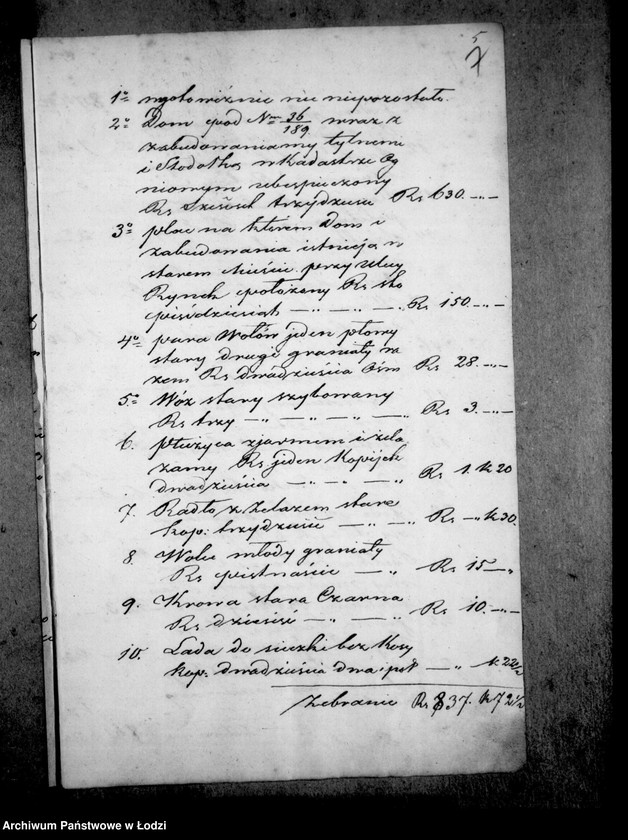 5
7
1º wgotowiźnie nic niepozostało.
2º Dom pod Nrm 36/189 wraz z
zabudowaniamy tylnemi
i Stodołką wKadastrze Og
niowym ubespieczony
Rs Sześćset trzydzieści Rs 630.-„-
3º plac na którem Dom i
zabudowania istnieją w
starem Mieście przy Ulicy
Rynek położony Rs sto
pięśdziesiąt -„-„-„- Rs 150.-„-
4º para Wołów jeden płowy
stary drugi graniaty ra
zem Rs dwadzieścia Ośm Rs 28.-„-
5º Wóz stary szybowany
Rs trzy -„-„-„- Rs 3.-„-
6. płużyca zjarmem i żela
zamy Rs jeden Kopijek
dwadzieścia -„-„- Rs 1. k 20
7. Radło z żelazem stare
kop: trzydzieści -„-„- Rs -„- k 30.
8. Wolec młody graniaty
Rs piętnaście -„ Rs 15-„
9. Krowa stara Czarna
Rs dziesięć -„-„- Rs 10.-„-
10. Lada do sieczki bez Kosy
kop: dwadzieścia dwa i pół -„ k. 22½
Zebranie Rs 837. k 72½
Archiwum Państwowe w Łodzi